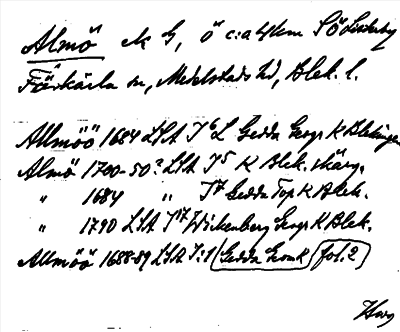 Almö ek G, ö c:a 4 km SÖ Listerby
Förkärla sn, Medelstads hd, Blek. l.
Allmöö 1684 LSA I 6 L Gedda Geogr K Blekinge
Almö 1700-50? LSA I 5 K Blek. skärg.
" 1684 " I 7 Gedda Top K Blek.
" 1790 LSA I 17 Wickenberg Geogr K Blek.
Allmöö 1688-89 LSA I:1 (Gedda Gron K fol. 2)